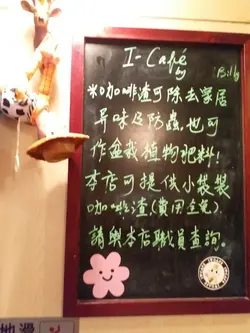 I-Café
by Billy
※咖啡渣可除去家居
異味及防蟲,也可
作盆栽植物肥料!
本店可提供小袋裝
咖啡渣(費用全免).
請與本店職員查詢。
地滑